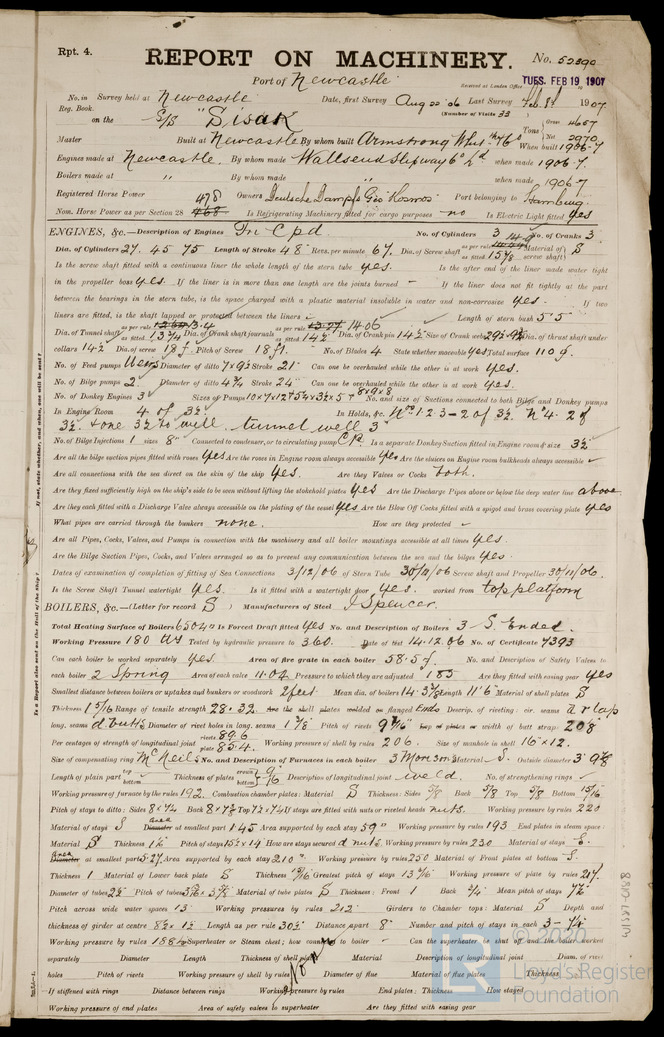 Rpt. 4.
REPORT ON MACHINERY.
No. 52399
Port of Newcastle
Received at London Office
TUES. FEB 19 1907
No. in Survey held at Newcastle Date, first Survey Aug 22 '06 Last Survey Feb 8 1907
Reg. Book.
(Number of Visits 33)
on the S/S "Sisak" Tons Gross 4607 Net 2970
Master Built at Newcastle By whom built Armstrong Whit. When built 1906-7
Engines made at Newcastle. By whom made Wallsend Slipway Co Ld when made 1906-7.
Boilers made at " By whom made " when made 1906-7
Registered Horse Power Owners Deutsche Dampfs Ges Kosmos Port belonging to Hamburg
Nom. Horse Power as per Section 28 478 Is Refrigerating Machinery fitted for cargo purposes no Is Electric Light fitted yes
ENGINES, &c.—Description of Engines Tri Cpd. No. of Cylinders 3 No. of Cranks 3
Dia. of Cylinders 27. 45 75 Length of Stroke 48 Revs. per minute 67. Dia. of Screw shaft as per rule as fitted 15 7/8 Material of screw shaft S
Is the screw shaft fitted with a continuous liner the whole length of the stern tube yes. Is the after end of the liner made water tight
in the propeller boss yes. If the liner is in more than one length are the joints burned – If the liner does not fit tightly at the part
between the bearings in the stern tube, is the space charged with a plastic material insoluble in water and non-corrosive yes. If two
liners are fitted, is the shaft lapped or protected between the liners Length of stern bush 5'5
Dia. of Tunnel shaft as per rule 13.4 as fitted 13 3/4 Dia. of Crank shaft journals as per rule 14.06 as fitted 14 1/2 Dia. of Crank pin 14 1/2 Size of Crank webs Dia. of thrust shaft under
collars 14 1/2 Dia. of screw 18 f. Pitch of Screw 18 f1. No. of Blades 4 State whether moveable yes Total surface 110 f.
No. of Feed pumps Weirs Diameter of ditto 7 x 9 1/2 Stroke 21 Can one be overhauled while the other is at work yes.
No. of Bilge pumps 2 Diameter of ditto 4 3/4 Stroke 24 Can one be overhauled while the other is at work yes.
No. of Donkey Engines 3 Sizes of Pumps No. and size of Suctions connected to both Bilge and Donkey pumps
In Engine Room 4 of 3 1/2 In Holds, &c. Nos 1.2.3 – 2 of 3 1/2. No 4. 2 of
3 1/2. & one 3 1/2 to well. tunnel well 3
No. of Bilge Injections 1 sizes 8" Connected to condenser, or to circulating pump C.P. Is a separate Donkey Suction fitted in Engine room & size 3 1/2
Are all the bilge suction pipes fitted with roses yes Are the roses in Engine room always accessible yes Are the sluices on Engine room bulkheads always accessible
Are all connections with the sea direct on the skin of the ship yes. Are they Valves or Cocks both.
Are they fixed sufficiently high on the ship's side to be seen without lifting the stokehold plates yes Are the Discharge Pipes above or below the deep water line above
Are they each fitted with a Discharge Valve always accessible on the plating of the vessel yes Are the Blow Off Cocks fitted with a spigot and brass covering plate yes
What pipes are carried through the bunkers none. How are they protected –
Are all Pipes, Cocks, Valves, and Pumps in connection with the machinery and all boiler mountings accessible at all times yes.
Are the Bilge Suction Pipes, Cocks, and Valves arranged so as to prevent any communication between the sea and the bilges yes.
Dates of examination of completion of fitting of Sea Connections 3/12/06 of Stern Tube 30/11/06 Screw shaft and Propeller 30/11/06.
Is the Screw Shaft Tunnel watertight yes. Is it fitted with a watertight door yes. worked from top platform
BOILERS, &c.—(Letter for record S) Manufacturers of Steel J Spencer.
Total Heating Surface of Boilers 6504 Is Forced Draft fitted yes No. and Description of Boilers 3 S. Ended.
Working Pressure 180 lbs Tested by hydraulic pressure to 360. Date of test 14.12.06 No. of Certificate 7393
Can each boiler be worked separately yes. Area of fire grate in each boiler 58.5 f. No. and Description of Safety Valves to
each boiler 2 Spring Area of each valve 11.04 Pressure to which they are adjusted 185 Are they fitted with easing gear yes
Smallest distance between boilers or uptakes and bunkers or woodwork 2 feet Mean dia. of boilers Length 11'6 Material of shell plates S
Thickness 1 5/16 Range of tensile strength 28 x 32 Are the shell plates welded or flanged Ends Descrip. of riveting: cir. seams d r lap
long. seams d butts Diameter of rivet holes in long. seams 1 3/8 Pitch of rivets 9 7/16 Lap of plates or width of butt straps 20 8
Per centages of strength of longitudinal joint rivets 89.6 plate 85.4. Working pressure of shell by rules 206. Size of manhole in shell 16" x 12.
Size of compensating ring McNeils No. and Description of Furnaces in each boiler 3 Morison Material S. Outside diameter
Length of plain part top bottom Thickness of plates crown bottom 9/16 Description of longitudinal joint weld. No. of strengthening rings
Working pressure of furnace by the rules 192. Combustion chamber plates: Material S Thickness: Sides 5/8 Back 5/8 Top 5/8 Bottom 15/16
Pitch of stays to ditto: Sides 8 x 7 1/2 Back 8 x 7 3/8 Top 7 1/2 x 7 1/2 If stays are fitted with nuts or riveted heads nuts. Working pressure by rules 220
Material of stays S Area at smallest part 1.45 Area supported by each stay 59" Working pressure by rules 193 End plates in steam space:
Material S Thickness Pitch of stays 15 1/2 x 14 How are stays secured d nuts. Working pressure by rules 230 Material of stays S.
Area at smallest part 5.27 Area supported by each stay 210" Working pressure by rules 250 Material of Front plates at bottom S.
Thickness 1 Material of Lower back plate S Thickness 15/16 Greatest pitch of stays 13 Working pressure of plate by rules 217.
Diameter of tubes 2 1/2 Pitch of tubes Material of tube plates S Thickness: Front 1 Back 3/4 Mean pitch of stays 7 1/2
Pitch across wide water spaces 13 Working pressures by rules 212. Girders to Chamber tops: Material S Depth and
thickness of girder at centre 8 1/2 x 1 1/2 Length as per rule 30 1/2 Distance apart 8" Number and pitch of stays in each 3 – 7 1/4
Working pressure by rules 188 Superheater or Steam chest; how connected to boiler – Can the superheater be shut off and the boiler worked
separately Diameter Length Thickness of shell plates Material Description of longitudinal joint Diam. of rivet
holes Pitch of rivets Working pressure of shell by rules Diameter of flue Material of flue plates Thickness
If stiffened with rings Distance between rings Working pressure by rules End plates: Thickness How stayed
None
Working pressure of end plates Area of safety valves to superheater Are they fitted with easing gear
Is a Report also sent on the Hull of the Ship?
If not, state whether, and when, one will be sent?
© 2020
Lloyd's Register
Foundation